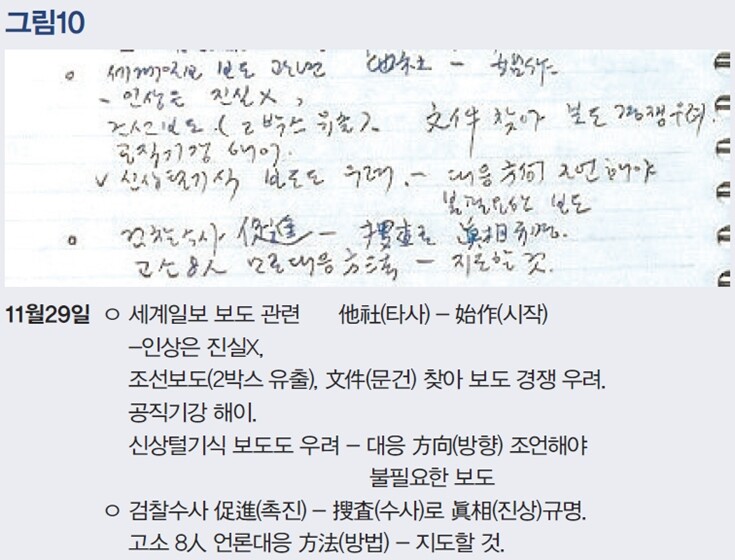 그림10
세계일보 보도 관련 他社 - 始作
- 인상은 진실X,
조선보도 (2박스 유출), 文件 찾아 보도 경쟁우려.
공직기강 해이.
v 신상털기식 보도도 우려 - 대응 方向 조언해야
불필요한 보도
검찰수사 促進 - 搜査로 眞相규명.
고소 8人 언론대응 方法 - 지도할 것.
11월29일 ㅇ 세계일보 보도 관련 他社(타사) – 始作(시작)
–인상은 진실X,
조선보도(2박스 유출), 文件(문건) 찾아 보도 경쟁 우려.
공직기강 해이.
신상털기식 보도도 우려 – 대응 方向(방향) 조언해야
불필요한 보도
ㅇ 검찰수사 促進(촉진) – 搜査(수사)로 眞相(진상)규명.
고소 8人 언론대응 方法(방법) – 지도할 것.